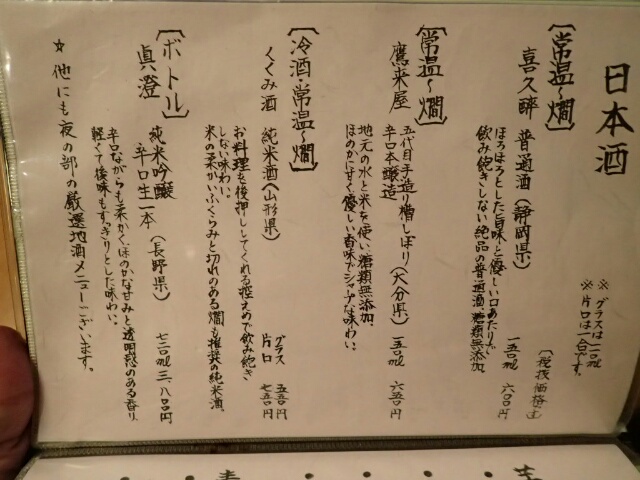 日本酒
※グラスは一一〇ml
※片口は一合です。
(税抜価格)
[常温〜燗]
喜久醉 普通酒(静岡県)
一五〇ml 六〇〇円
ほろほろとした旨味と優しい口あたりで
飲み飽きしない絶品の普通酒。糖類無添加
[常温〜燗]
鷹来屋 五代目手造り槽しぼり(大分県)
辛口本醸造
一五〇ml 六五〇円
地元の水と米を使い、糖類無添加。
ほのかに甘く優しい香味でシャープな味わい。
[冷酒・常温〜燗]
くくみ酒 純米酒(山形県)
グラス 五五〇円
片口 七五〇円
お料理を後押ししてくれる控えめで飲み飽き
しない味わい。
米の柔かいふくらみと切れのある燗も推奨の純米酒。
[ボトル]
真澄 純米吟醸
辛口生一本(長野県)
七二〇ml 三、八〇〇円
辛口ながらも柔かくほのかな甘みと透明感のある香り。
軽くて後味もすっきりとした味わい。
☆他にも夜の部の厳選地酒メニューございます。